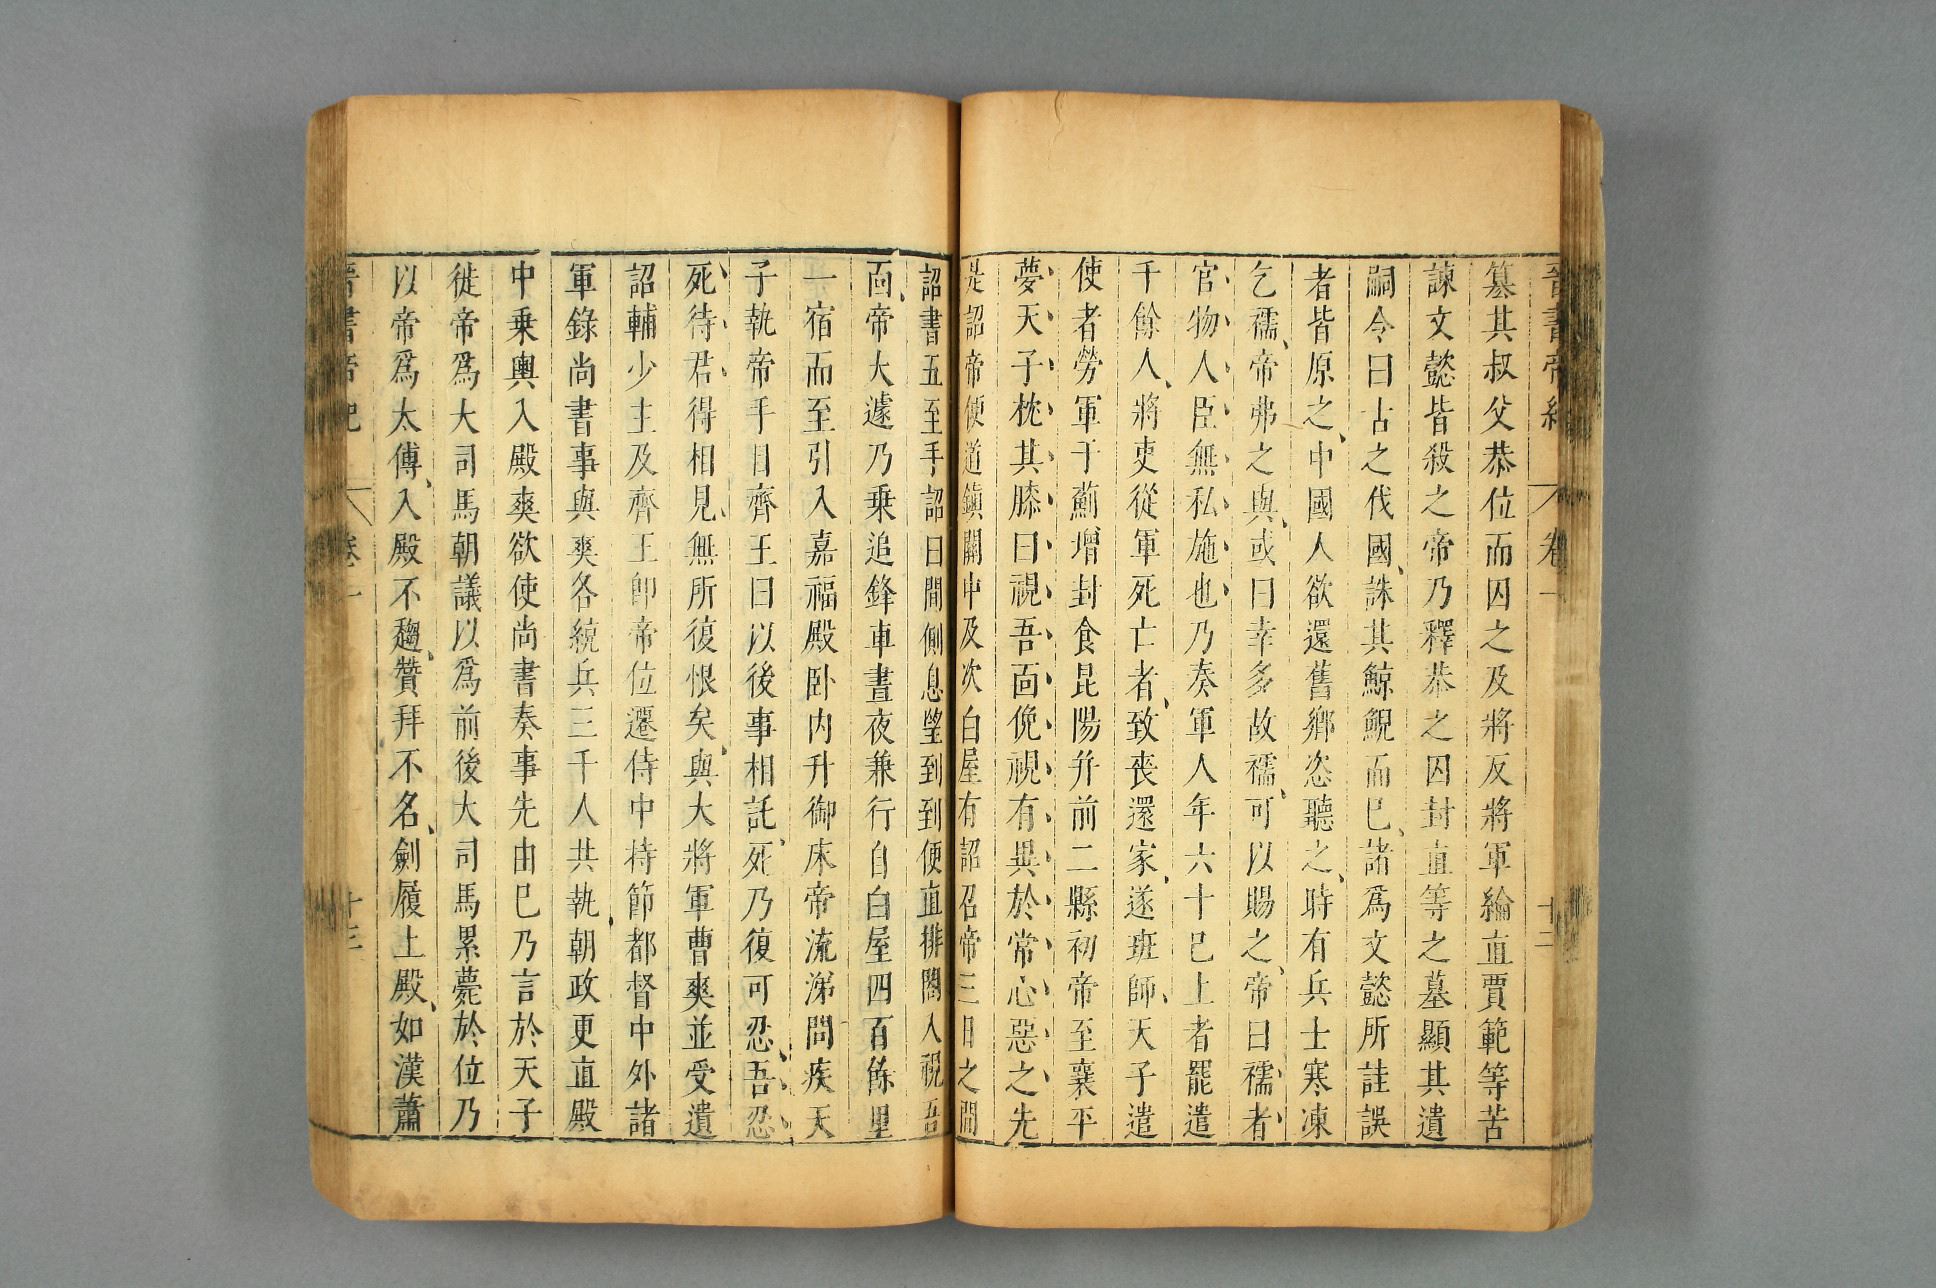 晉書帝紀 卷一 十二
篡其叔父恭位而囚之及將反將軍綸直賈範等苦
諫文懿皆殺之帝乃釋恭之囚封直等之墓顯其遺
嗣令曰古之伐國誅其鯨鯢而巳諸爲文懿所詿誤
者皆原之中國人欲還舊鄉恣聽之時有兵士寒凍
乞襦帝弗之與或曰幸多故襦可以賜之帝曰襦者
官物人臣無私施也乃奏軍人年六十巳上者罷遣
千餘人將吏從軍死亡者致喪還家遂班師天子遣
使者勞軍于薊增封食昆陽幷前二縣初帝至襄平
夢天子枕其膝曰視吾面俛視有異於常心惡之先
是詔帝便道鎭關中及次白屋有詔召帝三日之間
詔書五至手詔曰間側息望到到便直排閤入視吾
面帝大遽乃乗追鋒車晝夜兼行自白屋四百餘里
一宿而至引入嘉福殿卧内升御床帝流涕問疾天
子執帝手目齊王曰以後事相託死乃復可忍吾忍
死待君得相見無所復恨矣與大將軍曹爽並受遺
詔輔少主及齊王卽帝位遷侍中持節都督中外諸
軍錄尚書事與爽各統兵三千人共執朝政更直殿
中乗輿入殿爽欲使尚書奏事先由巳乃言於天子
徙帝爲大司馬朝議以爲前後大司馬累薨於位乃
以帝爲太傅入殿不趨贊拜不名劍履上殿如漢蕭
晉書帝紀 卷一 十三